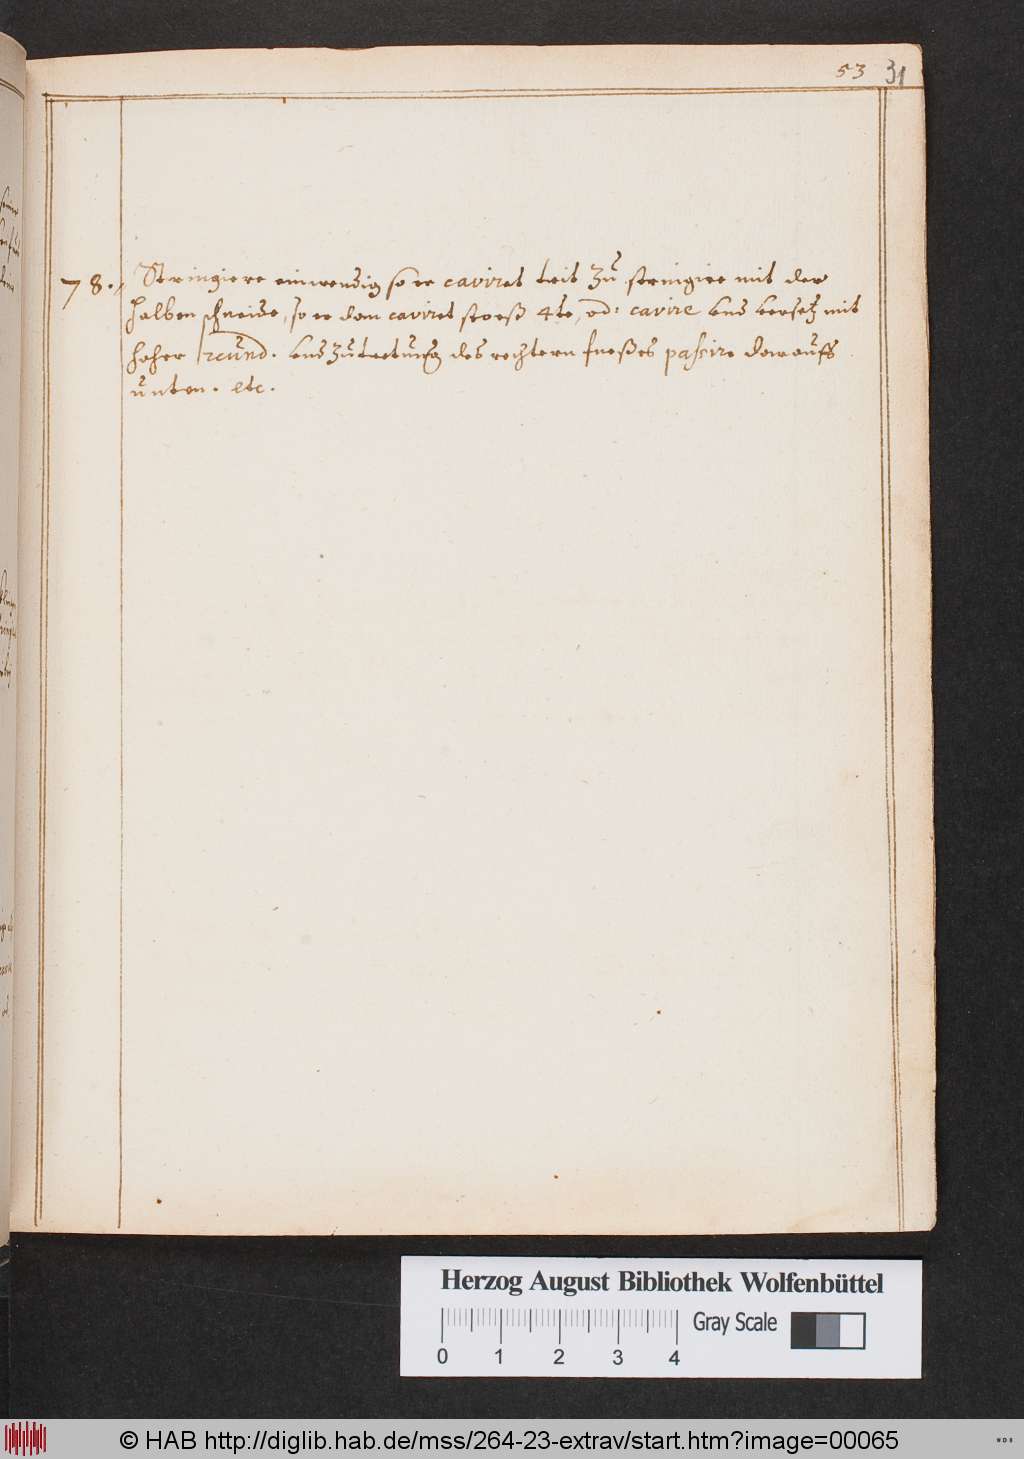 53 31
78. Stringiere einwendig so er caviret trit zu stringire mit der
halben schneide, so er dan caviret stoeß 4te, od: cavire und versetz mit
hoher secund. und zutrettung des rechtern fueßes passire darauff
unten. etc.
Herzog August Bibliothek Wolfenbüttel
Gray Scale
0 1 2 3 4
© HAB http://diglib.hab.de/mss/264-23-extrav/start.htm?image=00065